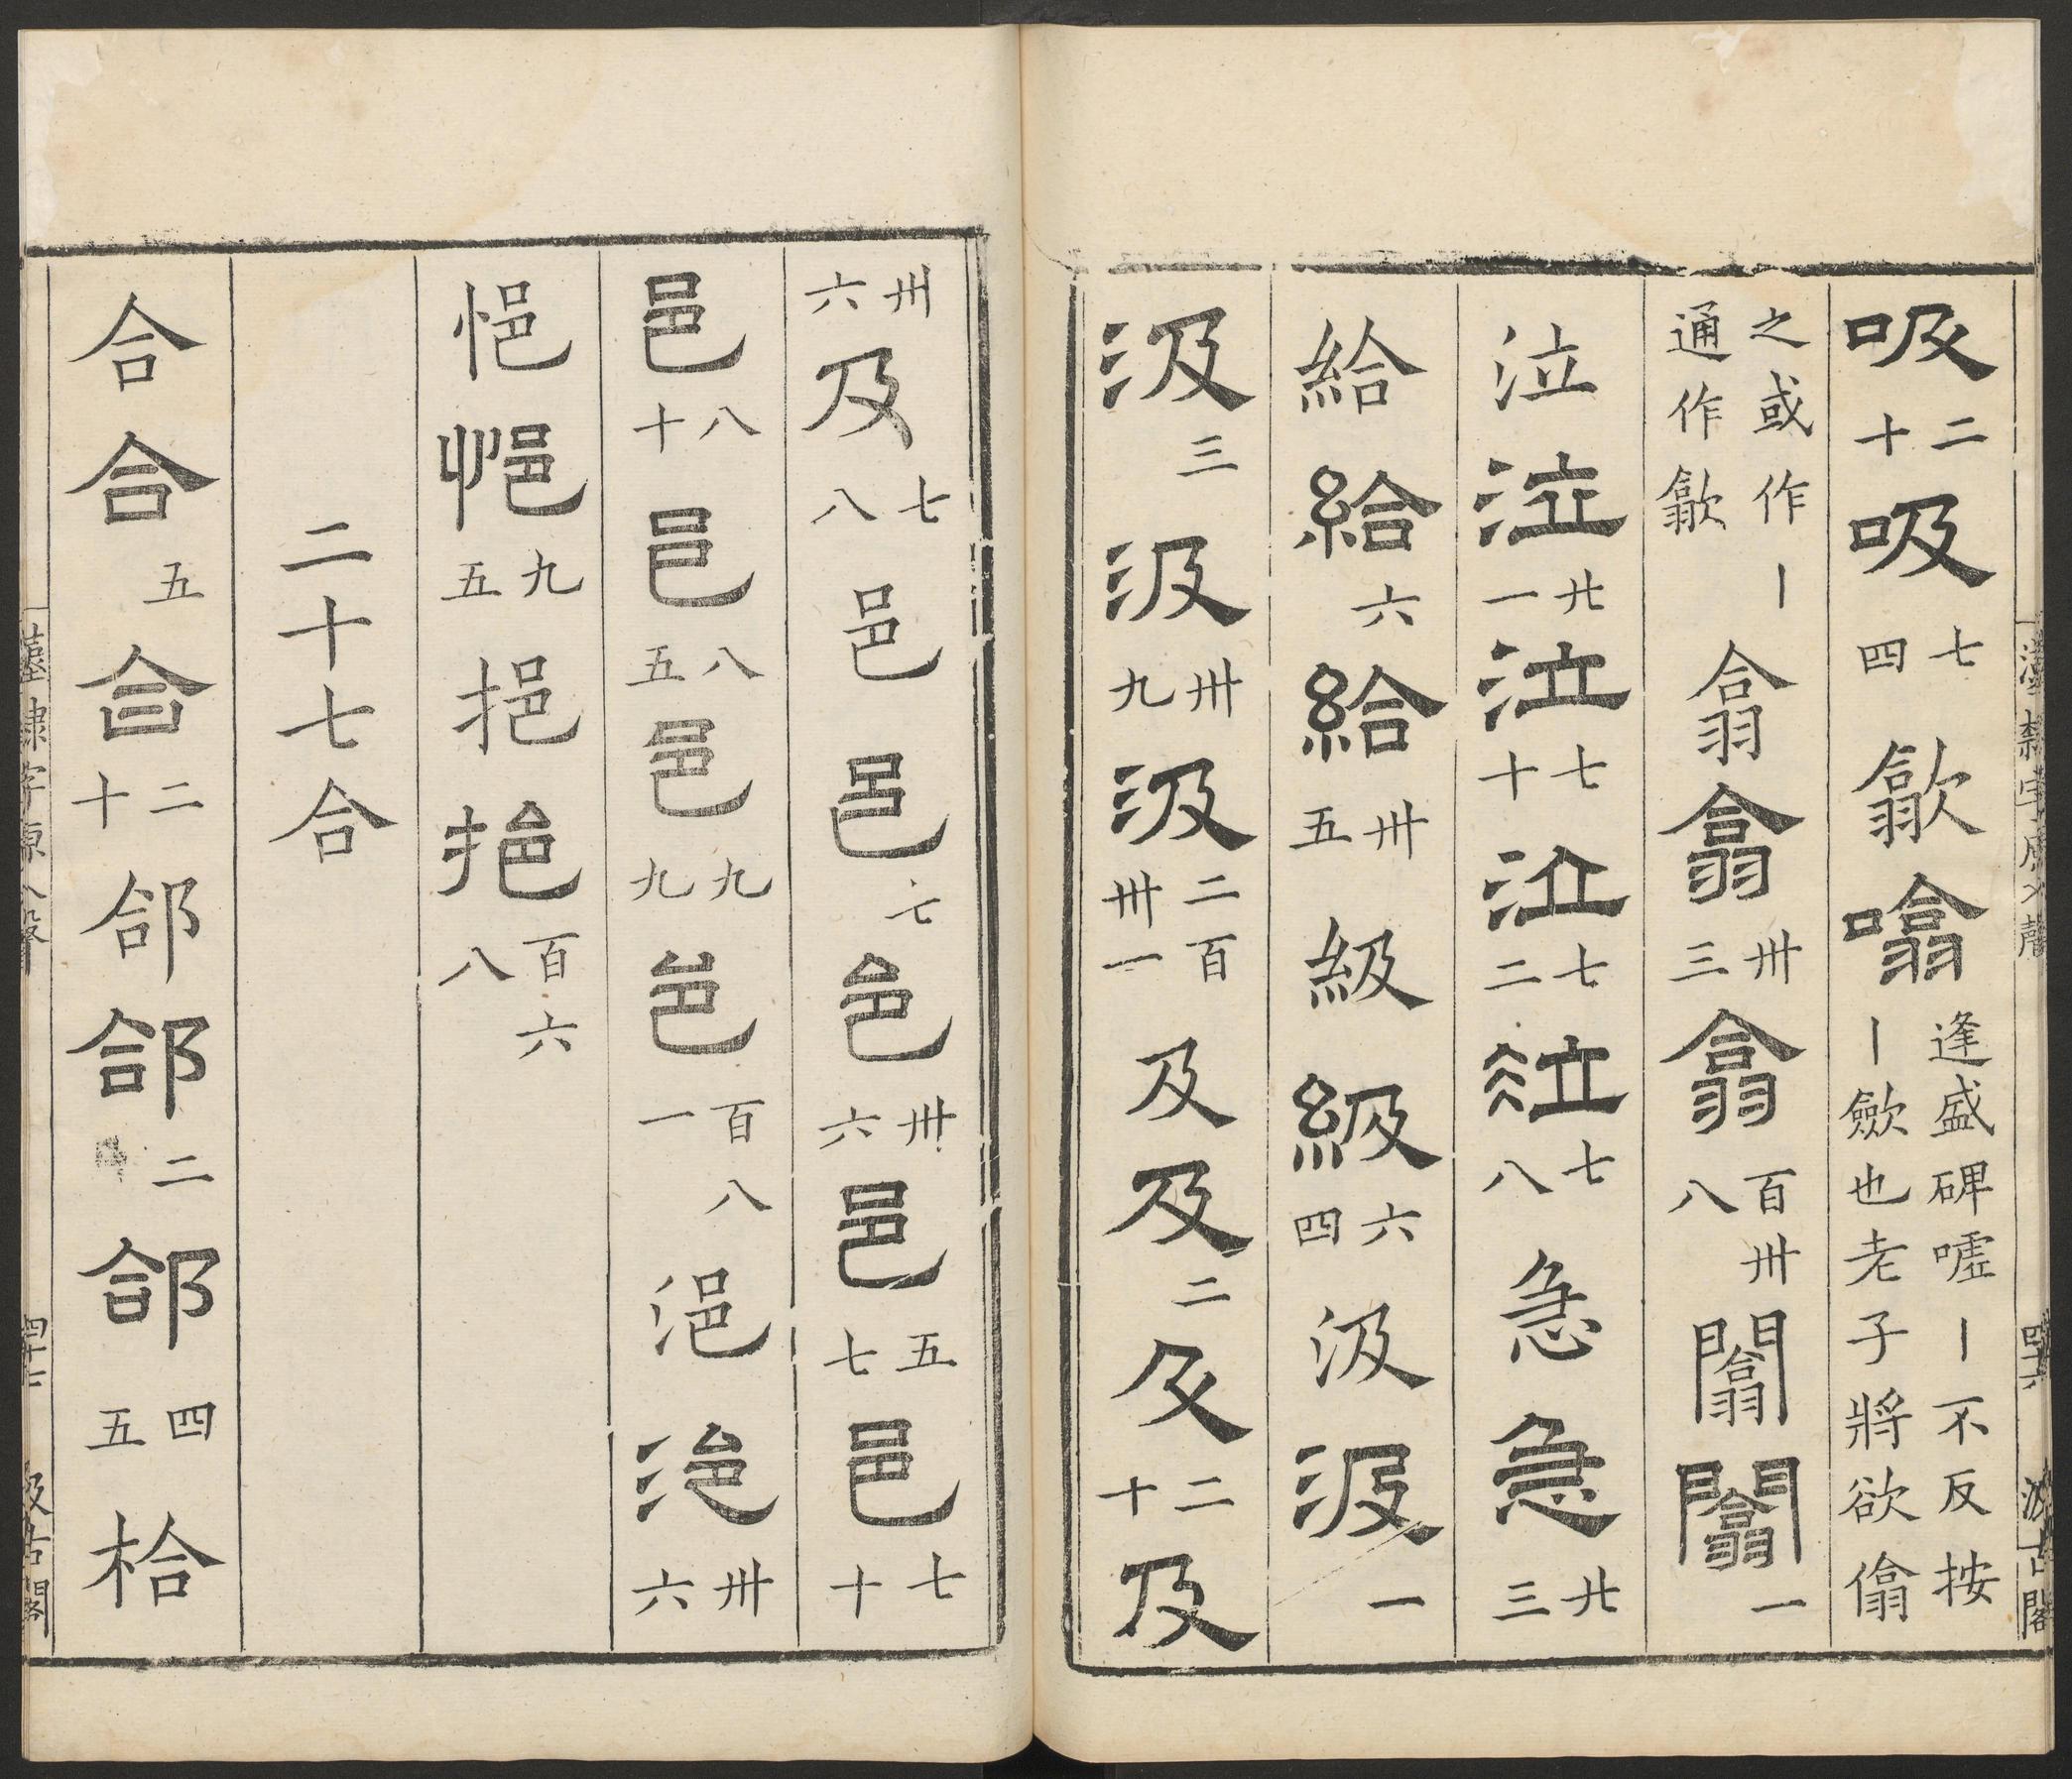 漢隸字原入聲 四十六 汲古閣
吸二十吸七四歙噏逢盛碑噓丨不反按丨歛也老子將欲㒆
之或作丨通作歙翕翕卅三翕百卅八闟闟一
泣泣廿一泣七十泣七二泣七八急急廿三
給給六給卅五級級六四汲汲一
汲三汲卅九汲二百卅一及及二及二十及
卅六及七八邑邑七邑卅六邑五七邑七十
邑八十邑八五邑九九邑百八一浥浥卅六
悒悒九五挹挹百六八
二十七合
合合五合二十郃郃二郃四五㭘
漢隸字原入聲 四十七 汲古閣